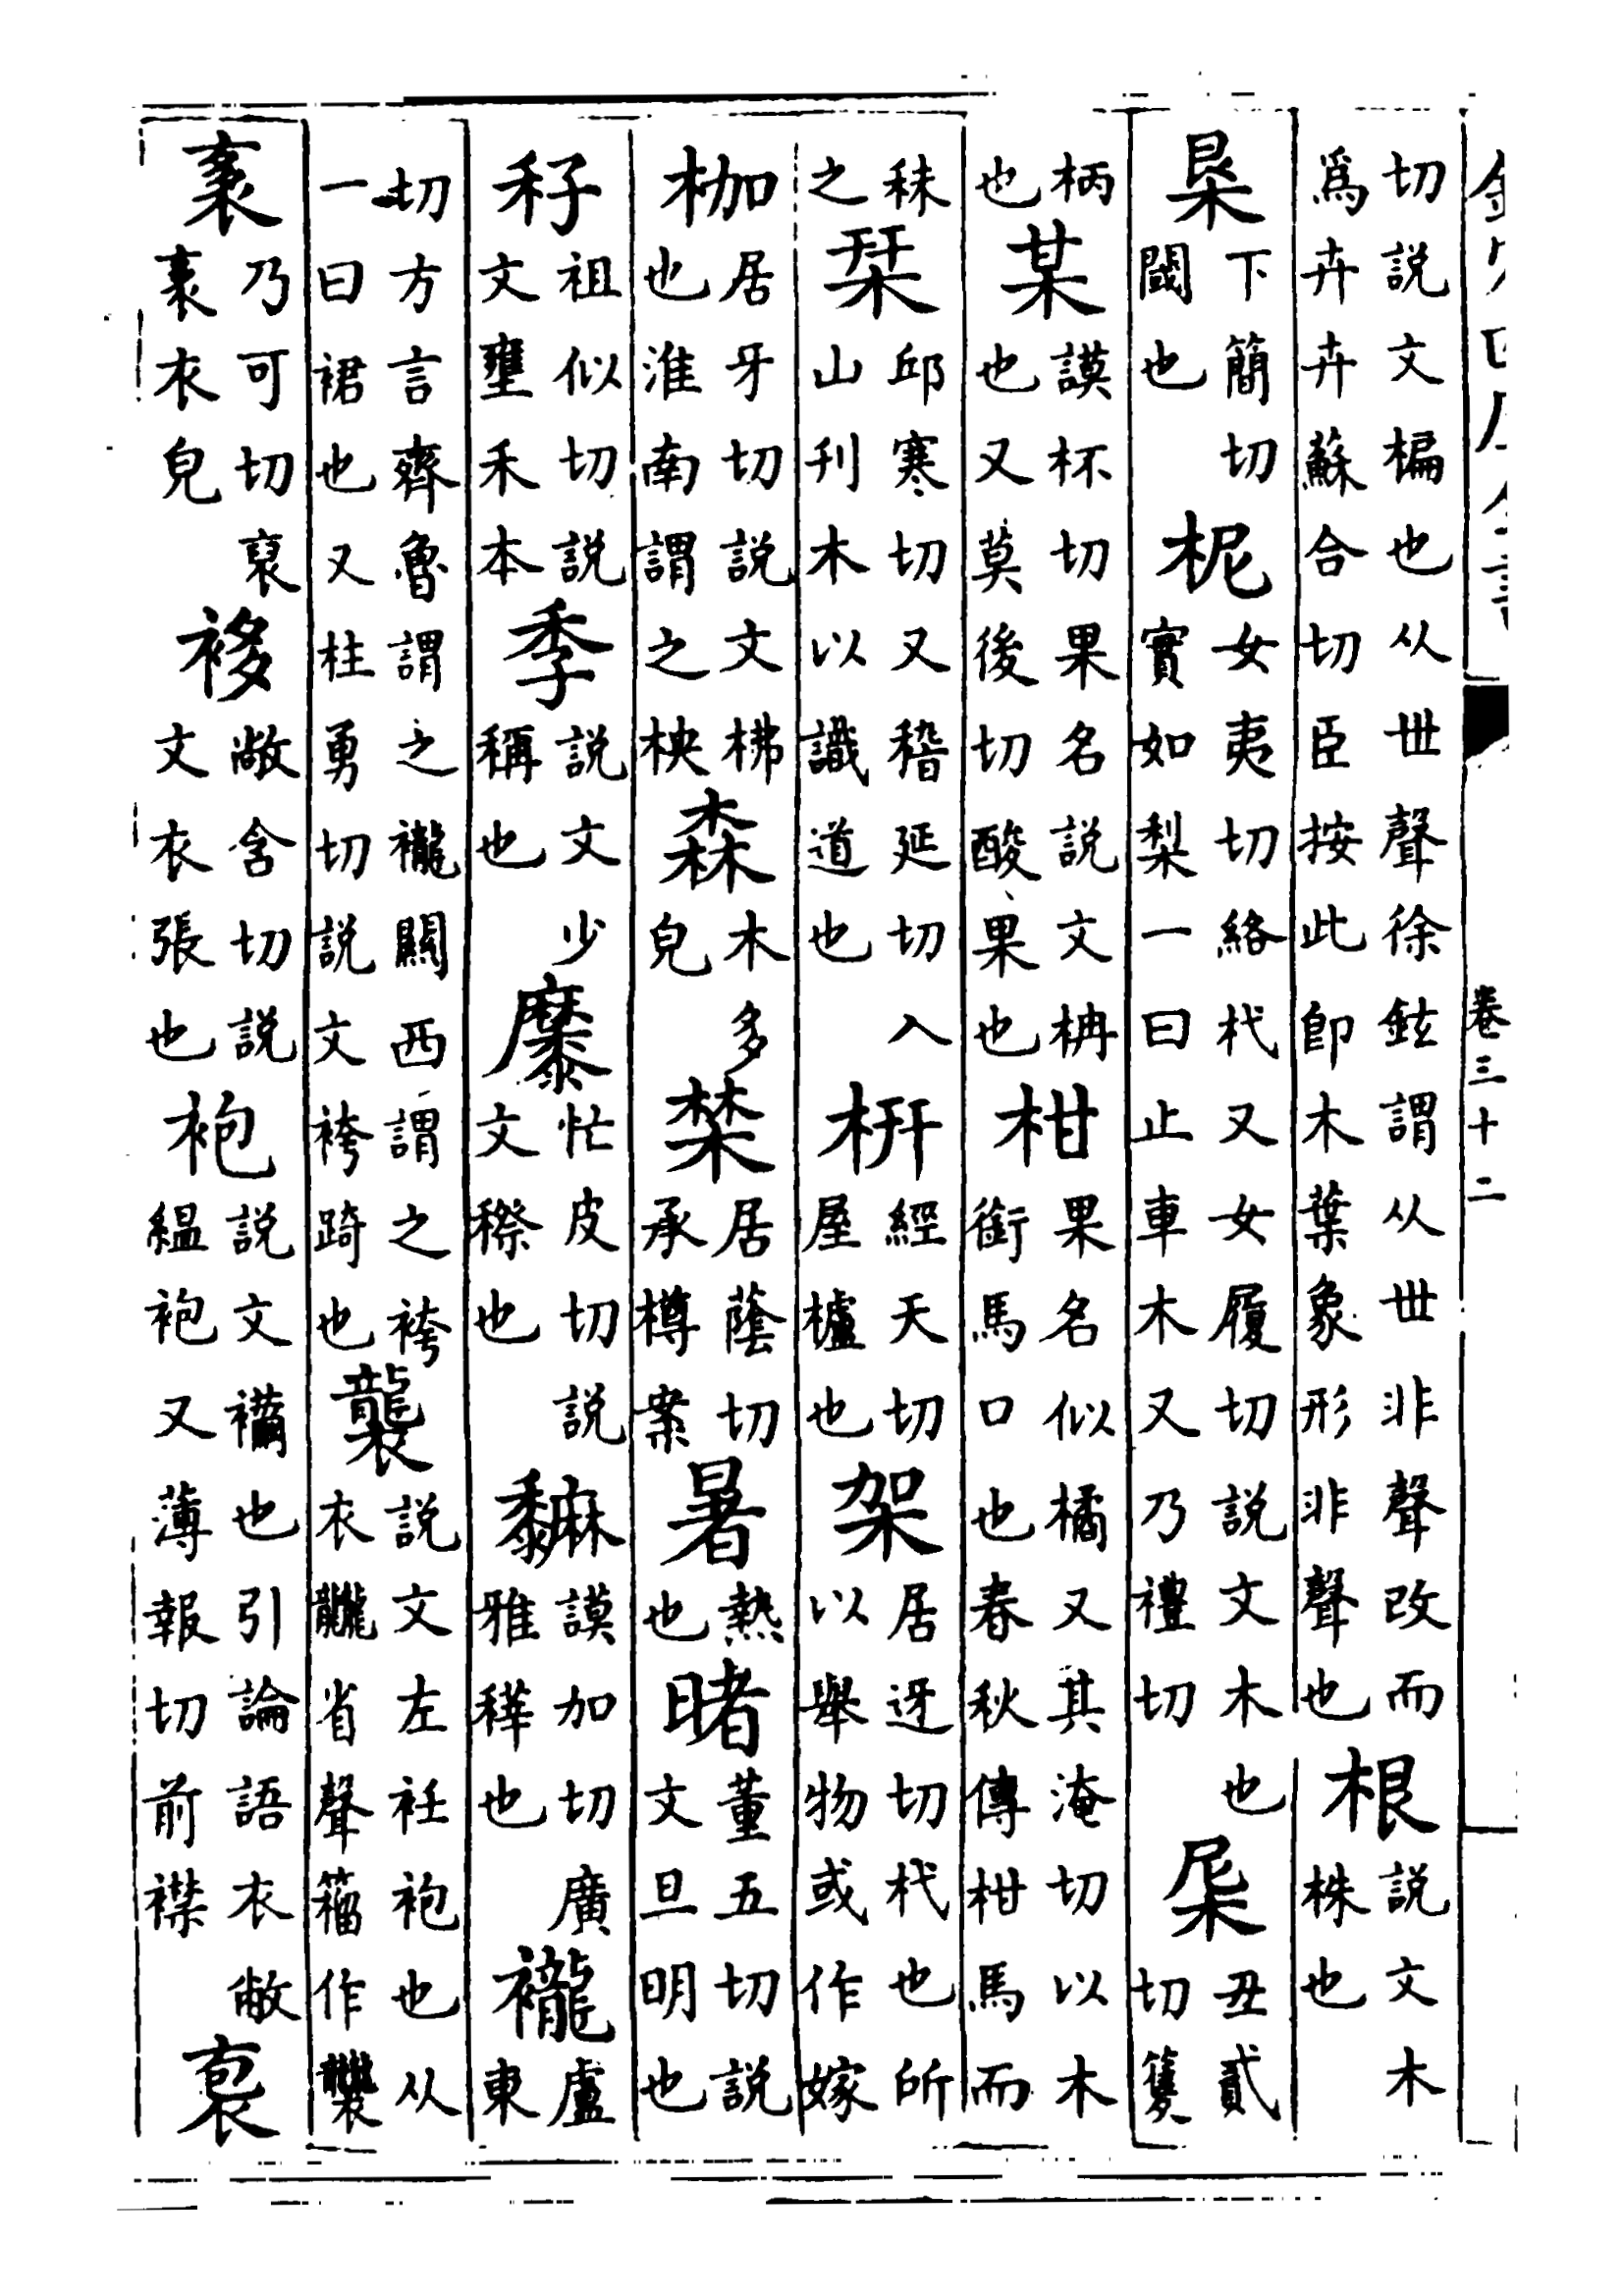 卷三十二
切説文楄也从丗聲徐鉉謂从丗非聲改而爲卉卉蘇合切臣按此即木葉象形非聲也根説文木株也
下簡切閾也柅女夷切絡杙又女履切説文木也實如梨一曰止車木又乃禮切丑貳切籆
柄也某謨杯切果名説文枏也又莫後切酸果也柑果名似橘又其淹切以木銜馬口也春秋傳柑馬而
秣之栞邱寒切又稽延切入山刋木以識道也枅經天切屋櫨也架居迓切杙也所以舉物或作嫁
枷居牙切説文柫也淮南謂之柍森木多皃居蔭切承樽案暑熱也暏董五切説文旦明也
秄祖似切説文壅禾本季説文少稱也忙皮切説文穄也謨加切廣雅也襱盧東
切方言齊魯謂之襱關西謂之袴一曰裙也又柱勇切説文袴踦也襲説文左衽袍也从衣龖省聲籒作
袲乃可切裒袲衣皃袳敞含切説文衣張也袍説文襺也引論語衣敝緼袍又薄報切前襟裒